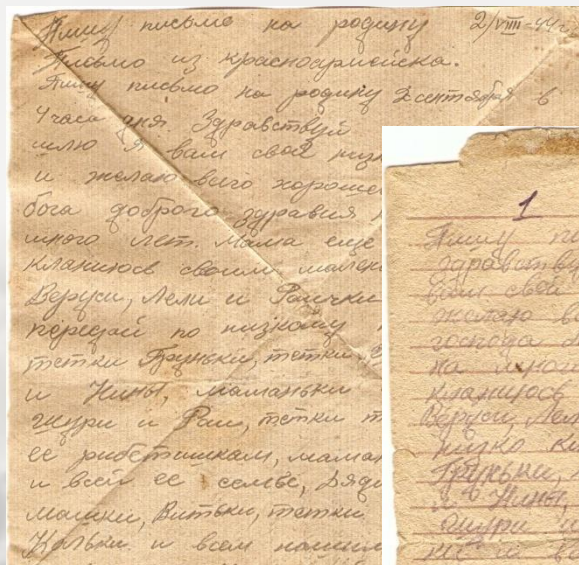 Пишу письмо на родину 2/VIII-44 г.
Письмо из красноармейска.
Пишу письмо на родину 2 сентября в
4 часа дня. Здравствуй
шлю я вам свой низк
и желаю всего хороше
бога доброго здравия
много лет. Мама еще
кланиюсь своим мален
Веруси, Лели и Раички
передай по низкому
тетки Груньки, тетки
и Нины, маманьки
и Раи, тетки
ее рибетишкам, мама
и всей ее семье, Дяди
машки, Витьки, тетки
Кольки и всем нашим
1
Пишу пи
здравству
вам свой
желаю в
господа
на много
кланиюсь
Веруси, Лел
низко кл
Груньки,
и Нины,